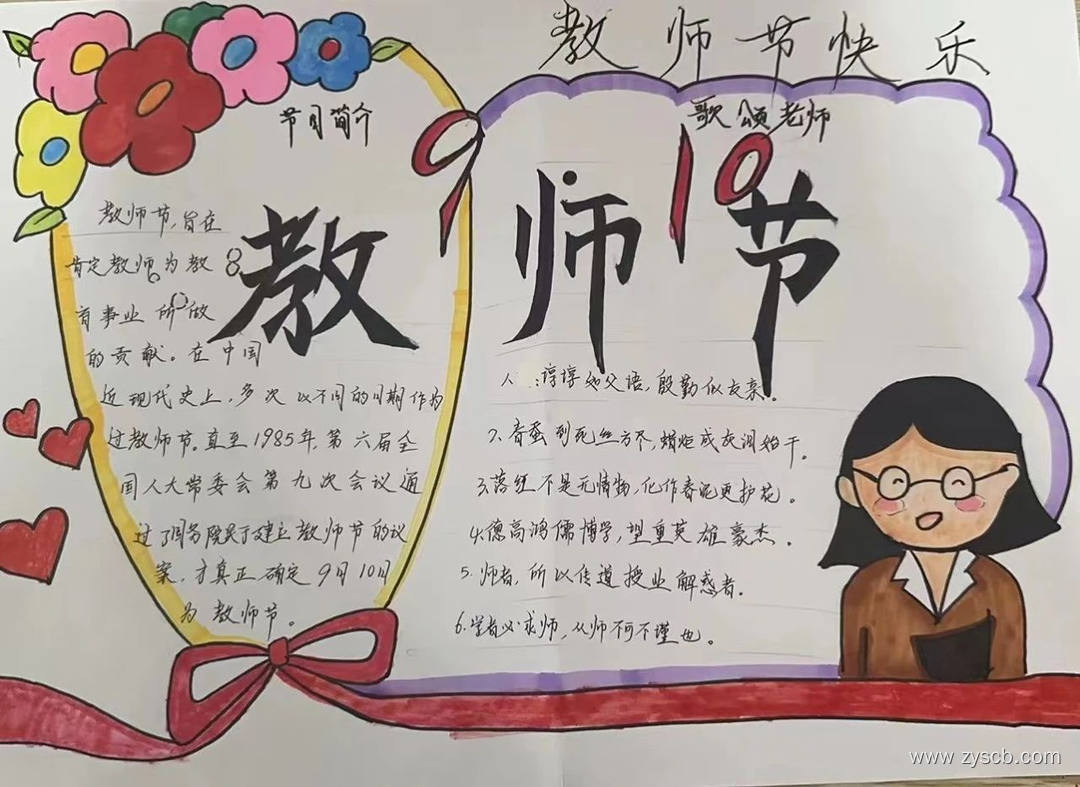 教师节快乐
节日简介
歌颂老师
9 10
教师节
教师节,旨在
肯定教师为教
育事业所做
的贡献。在中国
近现代史上,多次以不同的日期作为
过教师节。直至1985年,第六届全
国人大常委会第九次会议通
过了国务院关于建立教师节的议
案,才真正确定9月10日
为教师节。
:谆谆如父语,殷勤似友亲。
2、春蚕到死丝方尽,蜡炬成灰泪始干。
3、落红不是无情物,化作春泥更护花。
4、德高鸿儒博学,望重英雄豪杰。
5.师者,所以传道授业解惑者。
6.学者必求师,从师不可不谨也。
www.zyscb.com